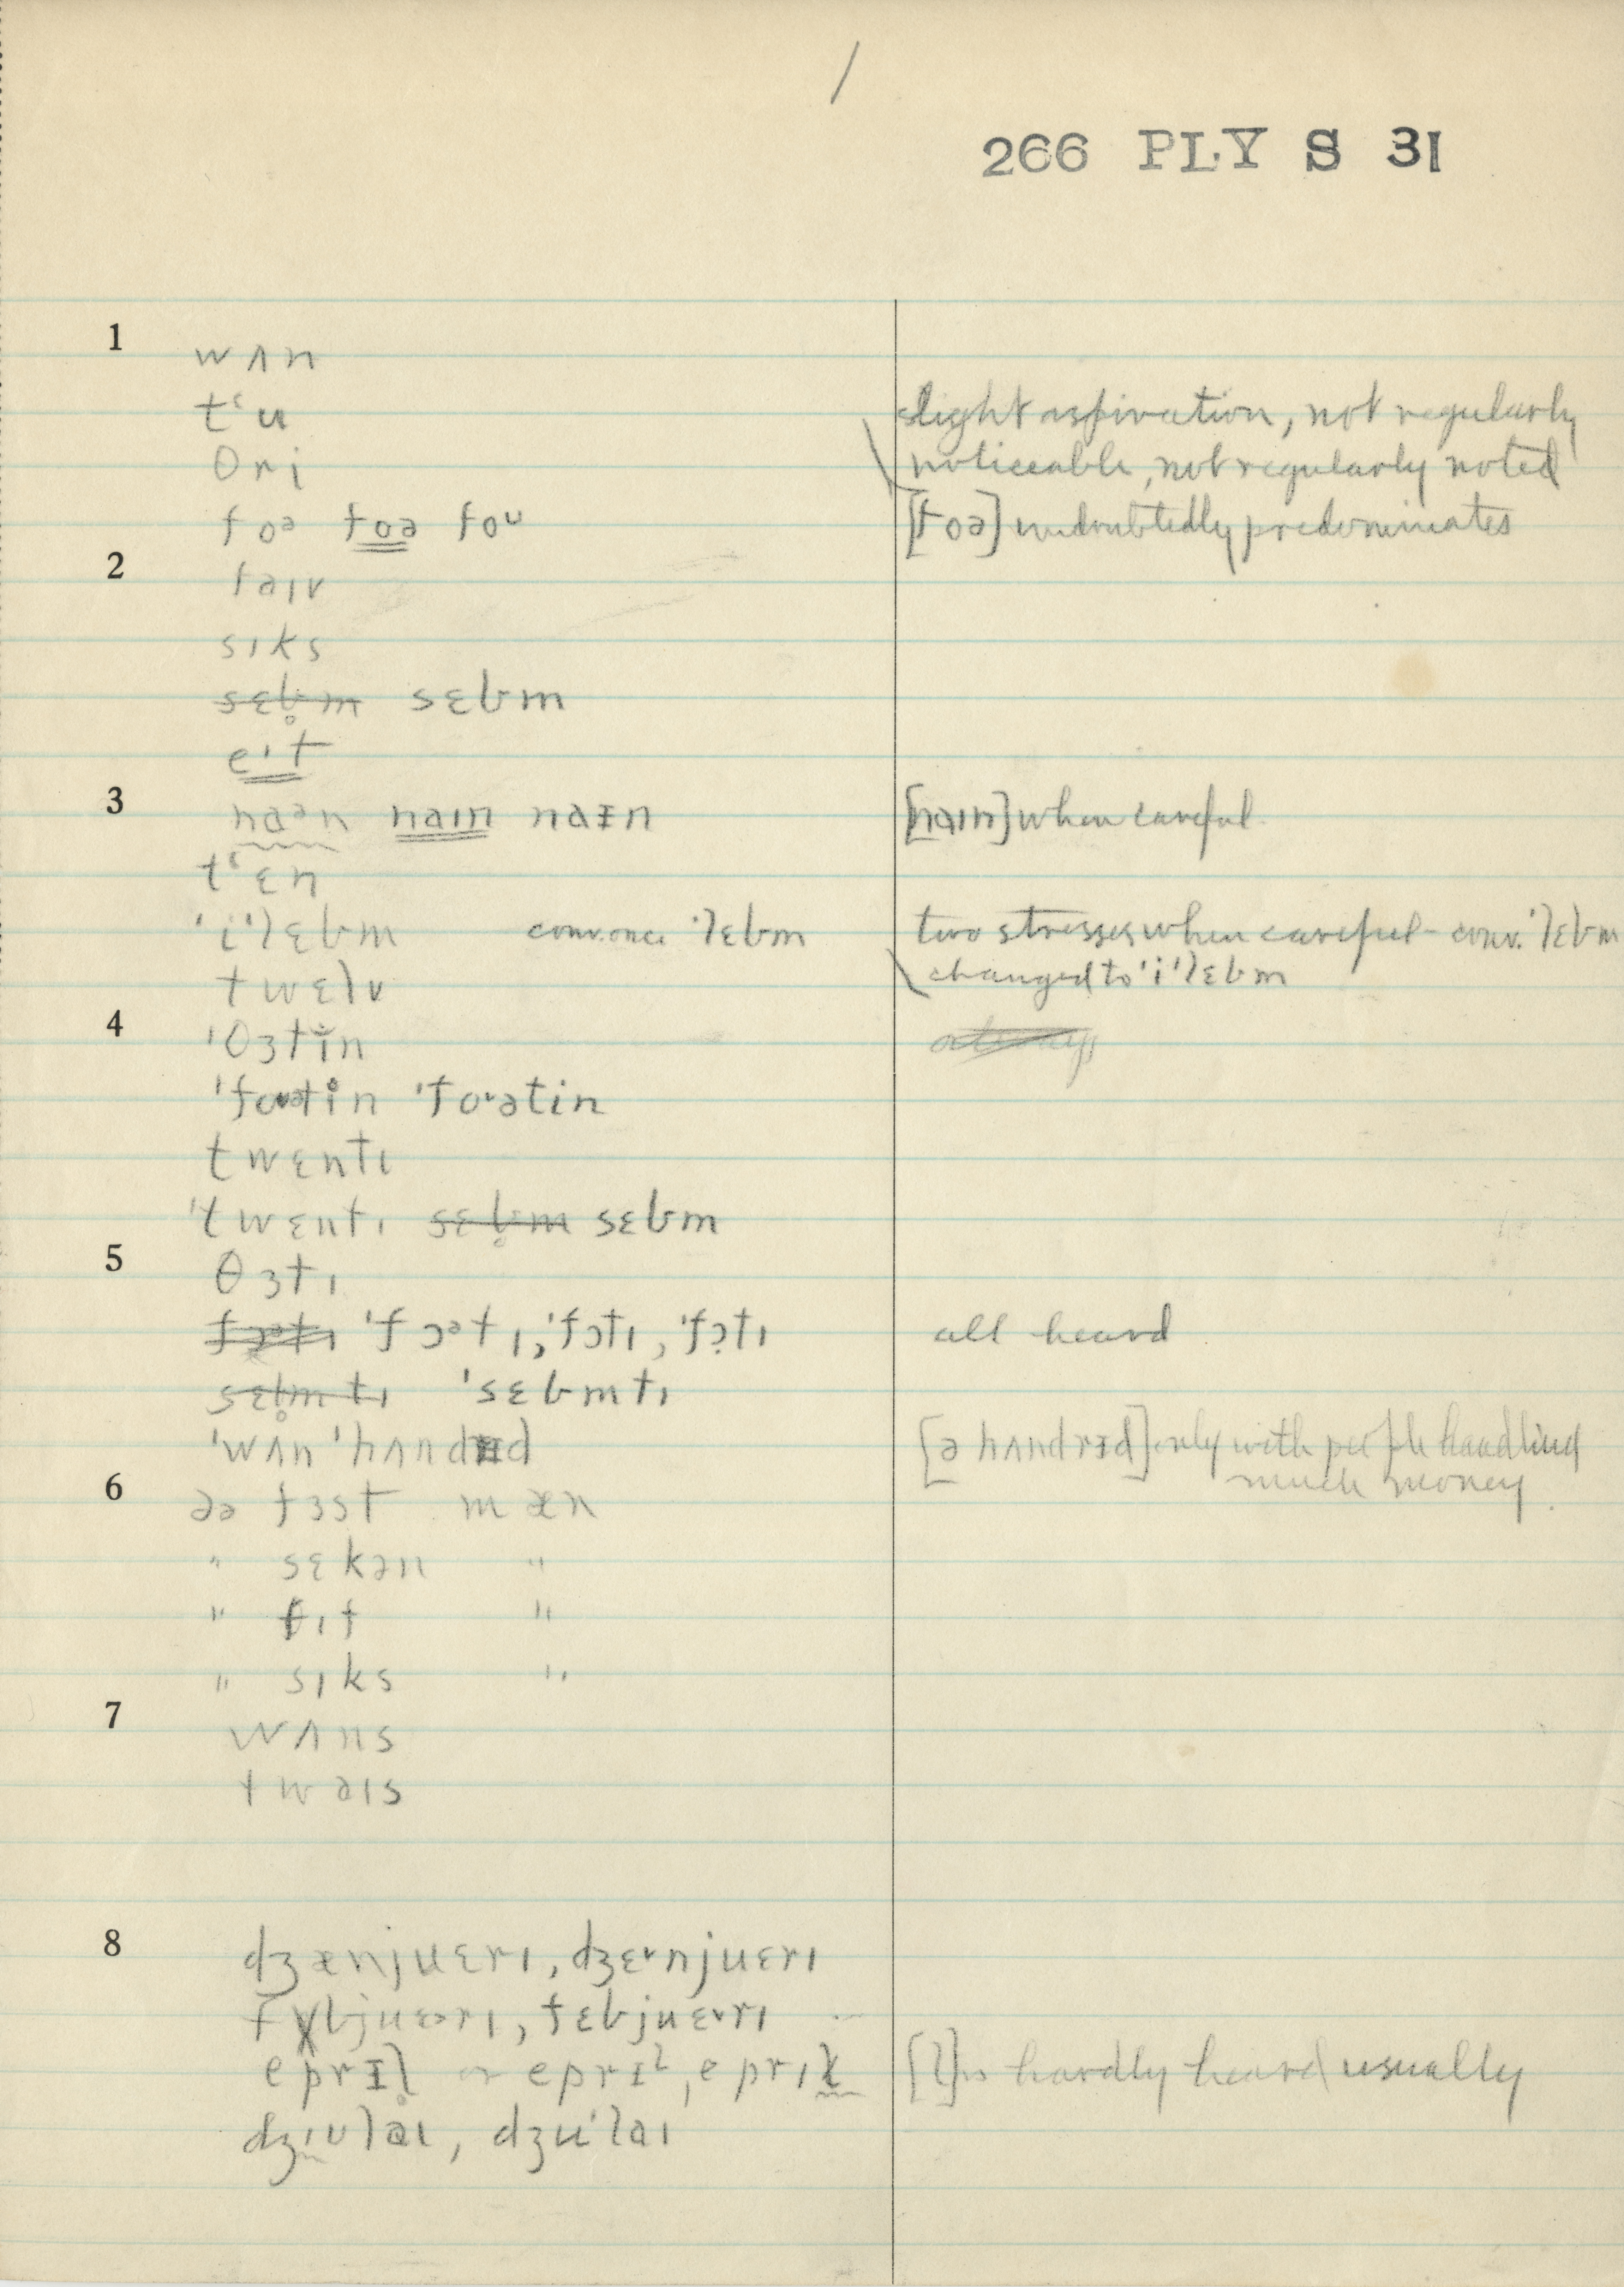 /
266 PLY S 31
1
wʌn
tʻu slight aspiration, not regularly
θri noticeable, not regularly noted
foᵊ foə foᵘ [foə] undoubtedly predominates
2
faɪv
sɪks
sɛb̥m sɛbm
eɪt
3
naᵊn naɪn naᵻn [naɪn] when careful
tʻɛn
ˈiˈlɛbm conv. once ˈlɛbm two stresses when careful – conv. ˈlɛbm
twɛlv changed to ˈiˈlɛbm
4
ˈθɜtin
ˈfoᵊtin ˈfoᵊtin
twɛntɪ
ˈtwɛntɪ sɛb̥m sɛbm
5
θɜtɪ
fɔᵊtɪ ˈfɔᵊtɪ, ˈfɔtɪ, ˈfɔ̣tɪ all heard
sɛb̥mtɪ ˈsɛbmtɪ
ˈwʌn ˈhʌndrᵻd [ə hʌndrᵻd] only with people handling
much money.
6
ðə fɜst mæn
" sɛkən "
" fɪf "
" sɪks "
7
wʌns
twaɪs
8
dʒænjuɛrɪ, dʒɛᵛnjuɛrɪ
fɛbjuɛrɪ, fɛbjuɛᵛrɪ
eprᵻl̥ or eprᵻˡ, eprɪɫ [l] is hardly heard usually
dʒɪʊlaɪ, dʒuˈlaɪ